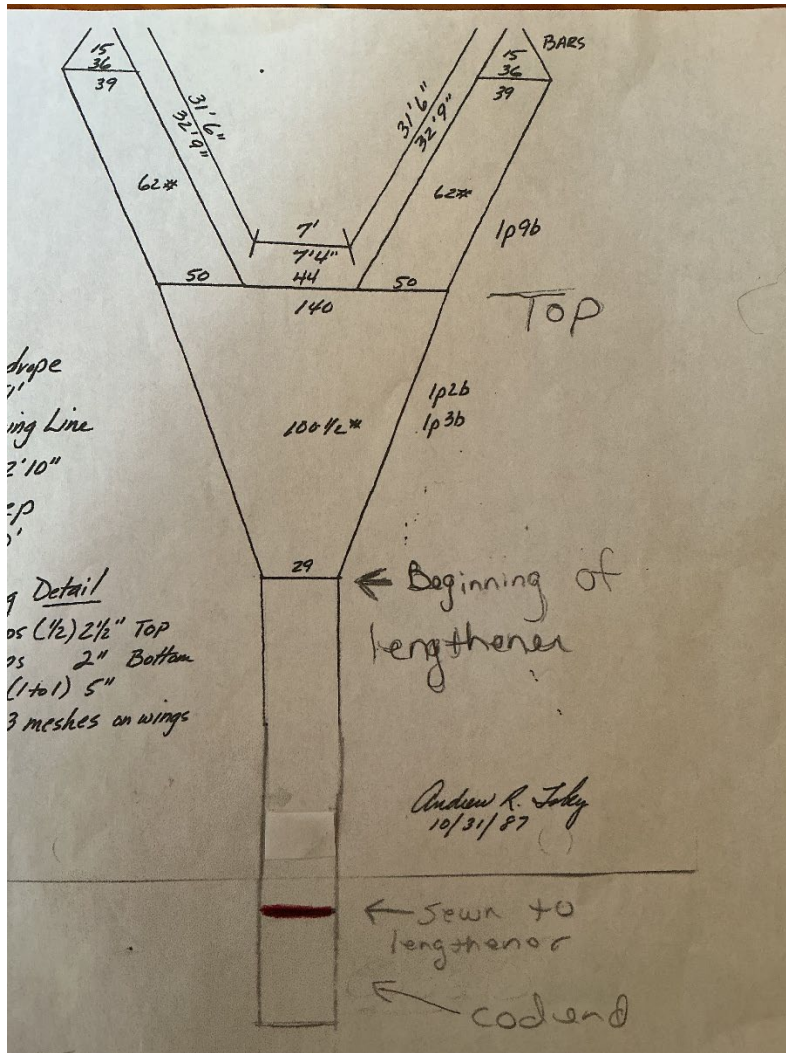 BARS
15
36
39
15
36
39
31'6"
32'9"
31'6"
32'9"
62*
62*
7'
7'4"
1p9b
50
44
50
140
TOP
drope
1'
ing Line
2'10"
ep
0'
100 1/2*
1p2b
1p3b
29
← Beginning of
lengthener
g Detail
os (1/2) 2 1/2" TOP
os 2" Bottom
(1 to 1) 5"
3 meshes on wings
Andrew R.
10/31/87
← Sewn to
lengthenor
← codend